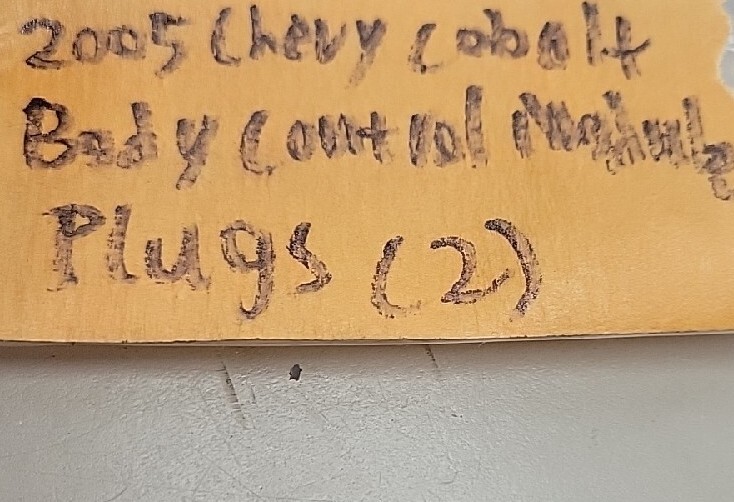 2005 Chevy Cobalt
Body Control Module
Plugs (2)